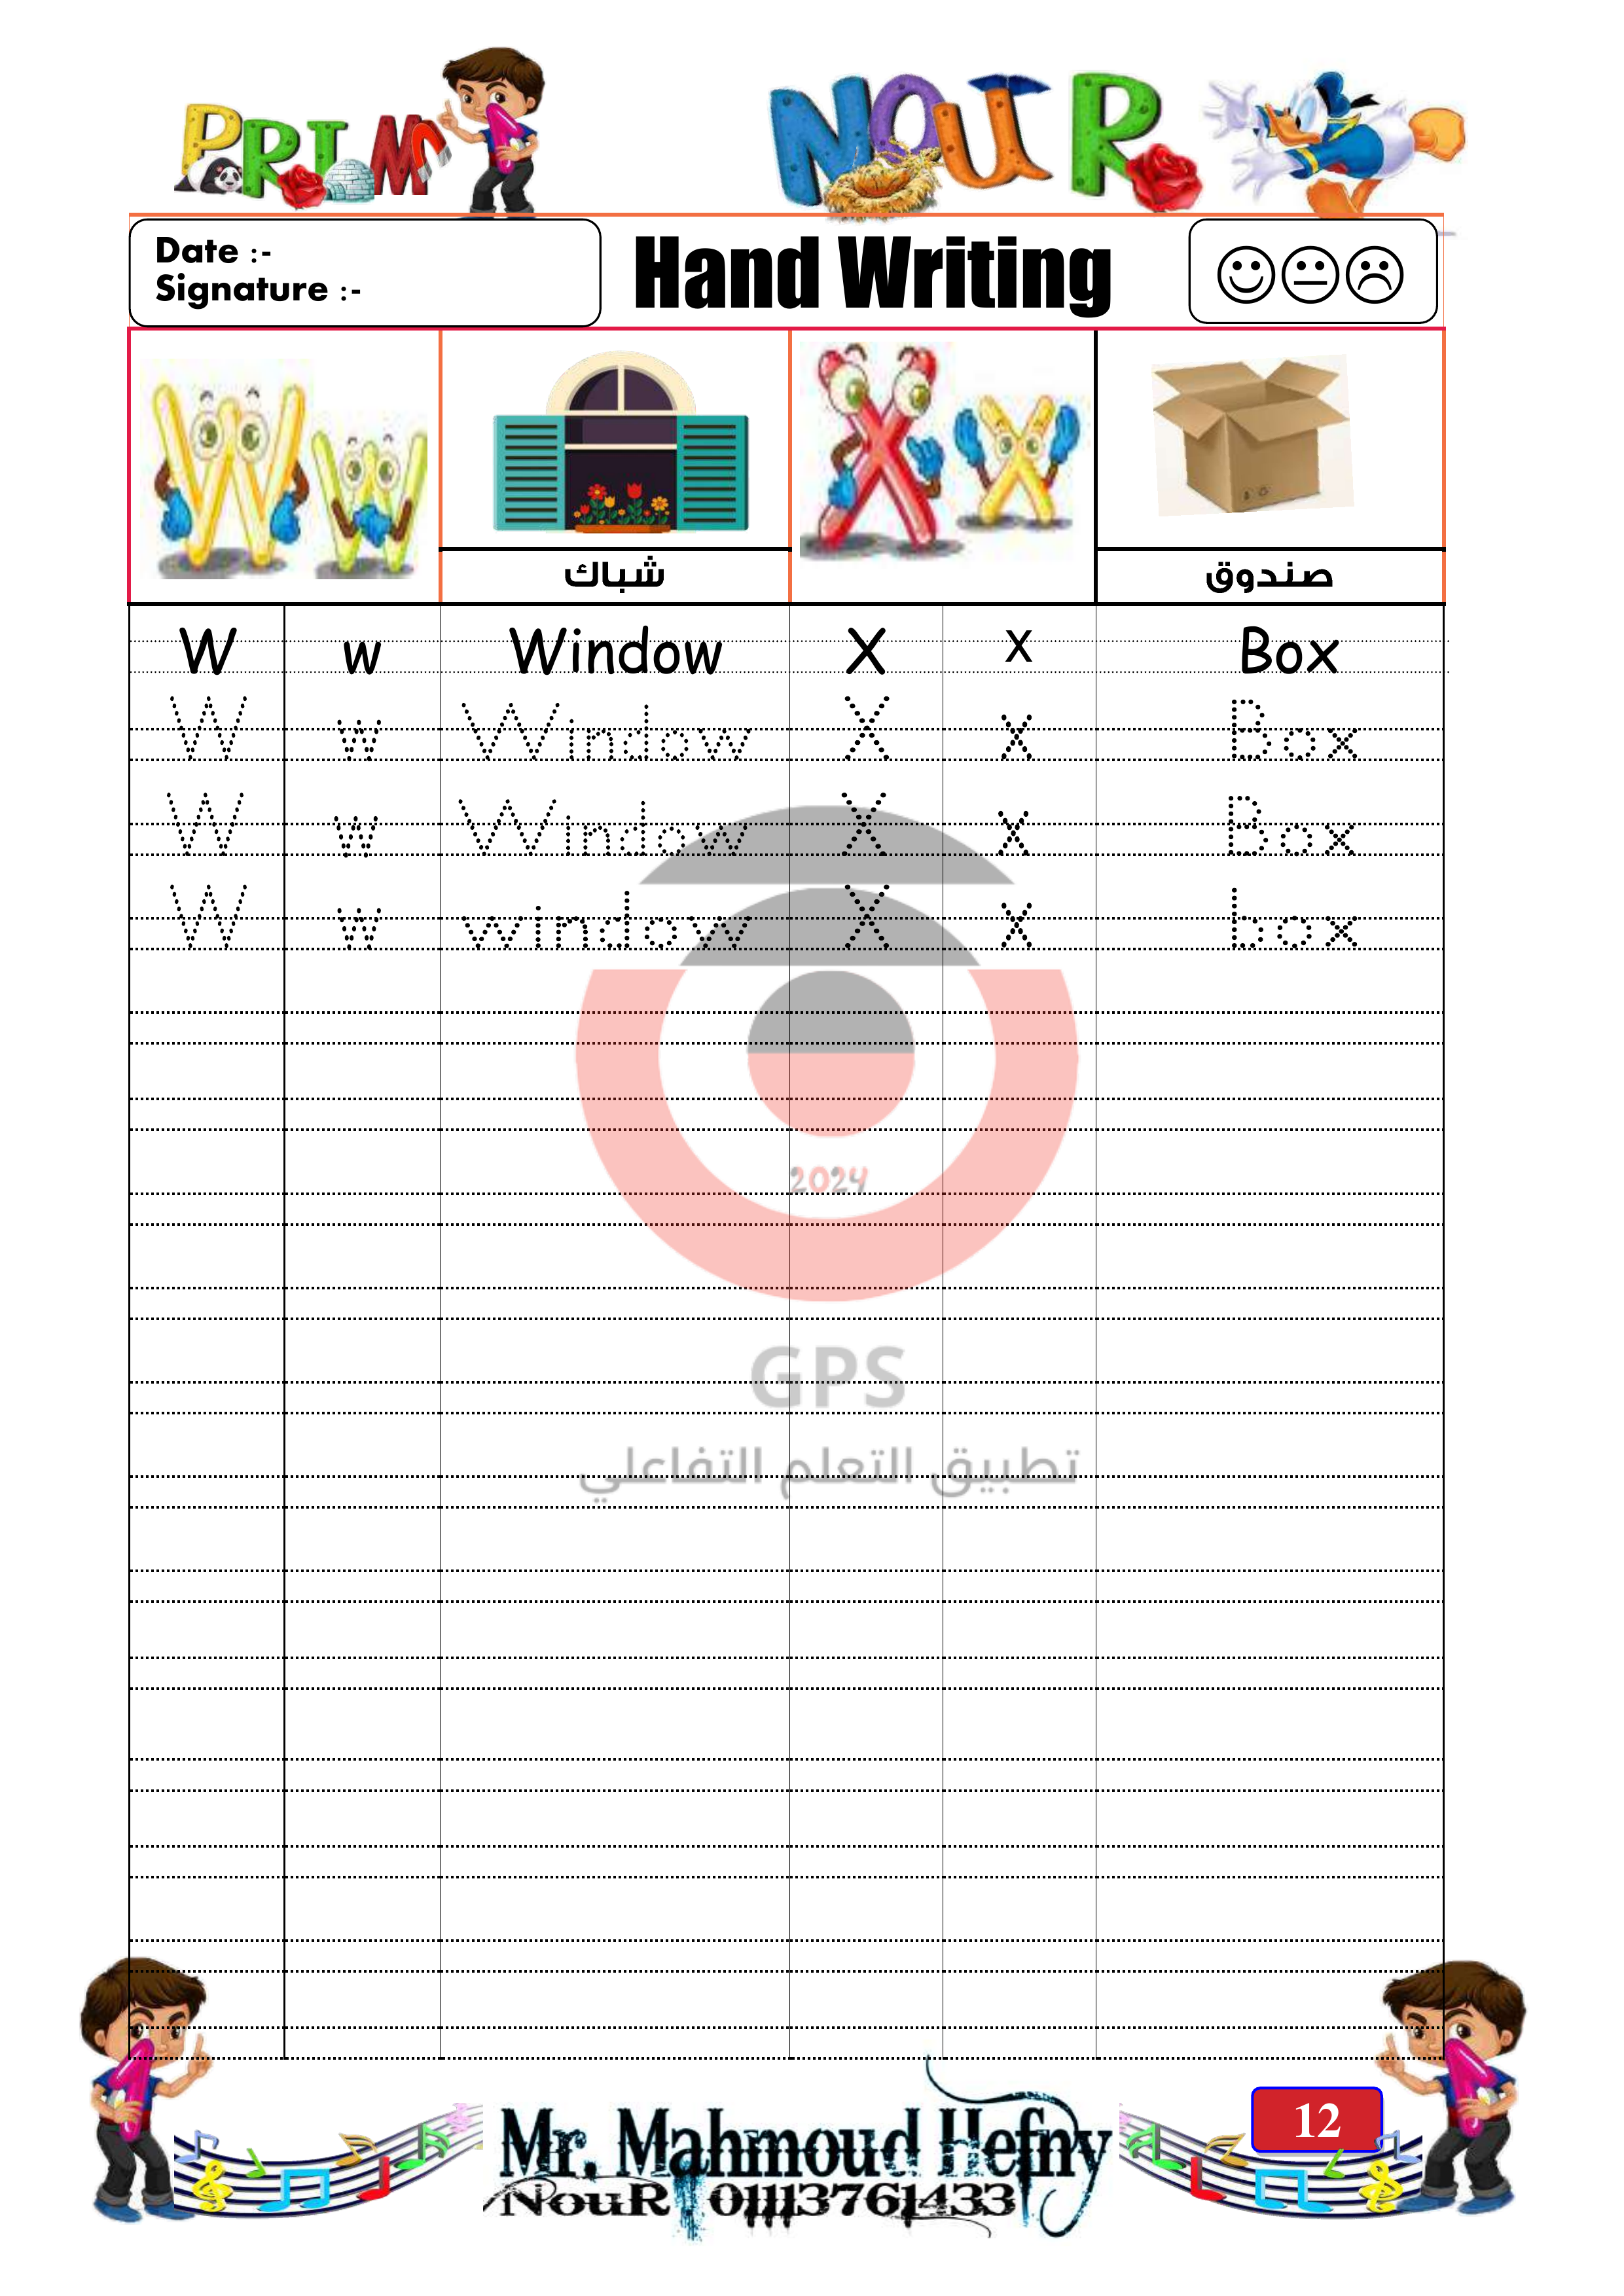 PRIM 1
NOUR
Date :-
Signature :-
Hand Writing
W w
X x
شباك
صندوق
W w Window X x Box
W w Window X x Box
W w Window X x Box
W w window X x box
2024
GPS
تطبيق التعلم التفاعلي
12
Mr. Mahmoud Hefny
NouR. 01113761433